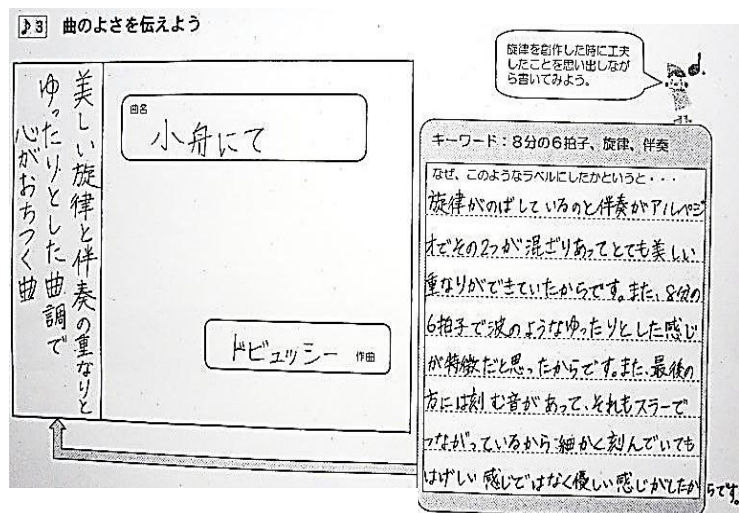 ♪3 曲のよさを伝えよう
旋律を創作した時に工夫
したことを思い出しなが
ら書いてみよう。
美しい旋律と伴奏の重なりと
ゆったりとした曲調で
心がおちつく曲
曲名
小舟にて
ドビュッシー 作曲
キーワード:8分の6拍子、旋律、伴奏
なぜ、このようなラベルにしたかというと・・・
旋律がのばしているのと伴奏がアルペジ
オでその2つが混ざりあってとても美しい
重なりができていたからです。また、8分の
6拍子で波のようなゆったりとした感じ
が特徴だと思ったからです。また、最後の
方には刻む音があって、それもスラーで
つながっているから細かく刻んでいても
はげしい感じではなく優しい感じがしたからです。